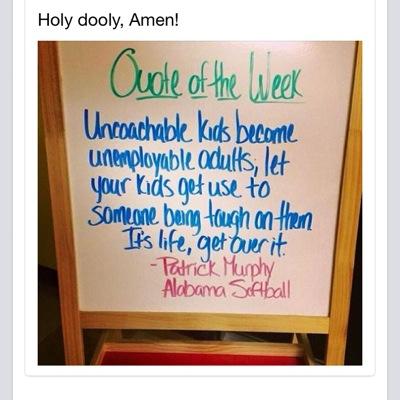 Holy dooly, Amen!
Quote of the Week
Uncoachable kids become
unemployable adults; let
your kids get use to
someone being tough on them
It's life, get over it.
- Patrick Murphy
Alabama Softball